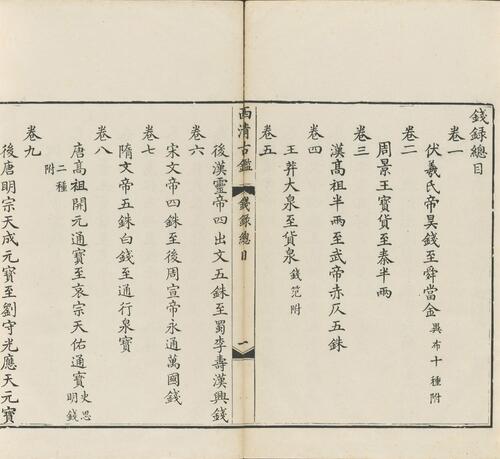 錢録總目
卷一
伏羲氏帝昊錢至舜當金 異布十種附
卷二
周景王寶貨至秦半兩
卷三
漢高祖半兩至武帝赤仄五銖
卷四
王莽大泉至貨泉 錢范附
卷五
西清古鑑 錢録總目 一
後漢靈帝四出文五銖至蜀李壽漢興錢
卷六
宋文帝四銖至後周宣帝永通萬國錢
卷七
隋文帝五銖白錢至通行泉寶
卷八
唐高祖開元通寶至哀宗天佑通寶 史思明錢
二種附
卷九
後唐明宗天成元寶至劉守光應天元寶